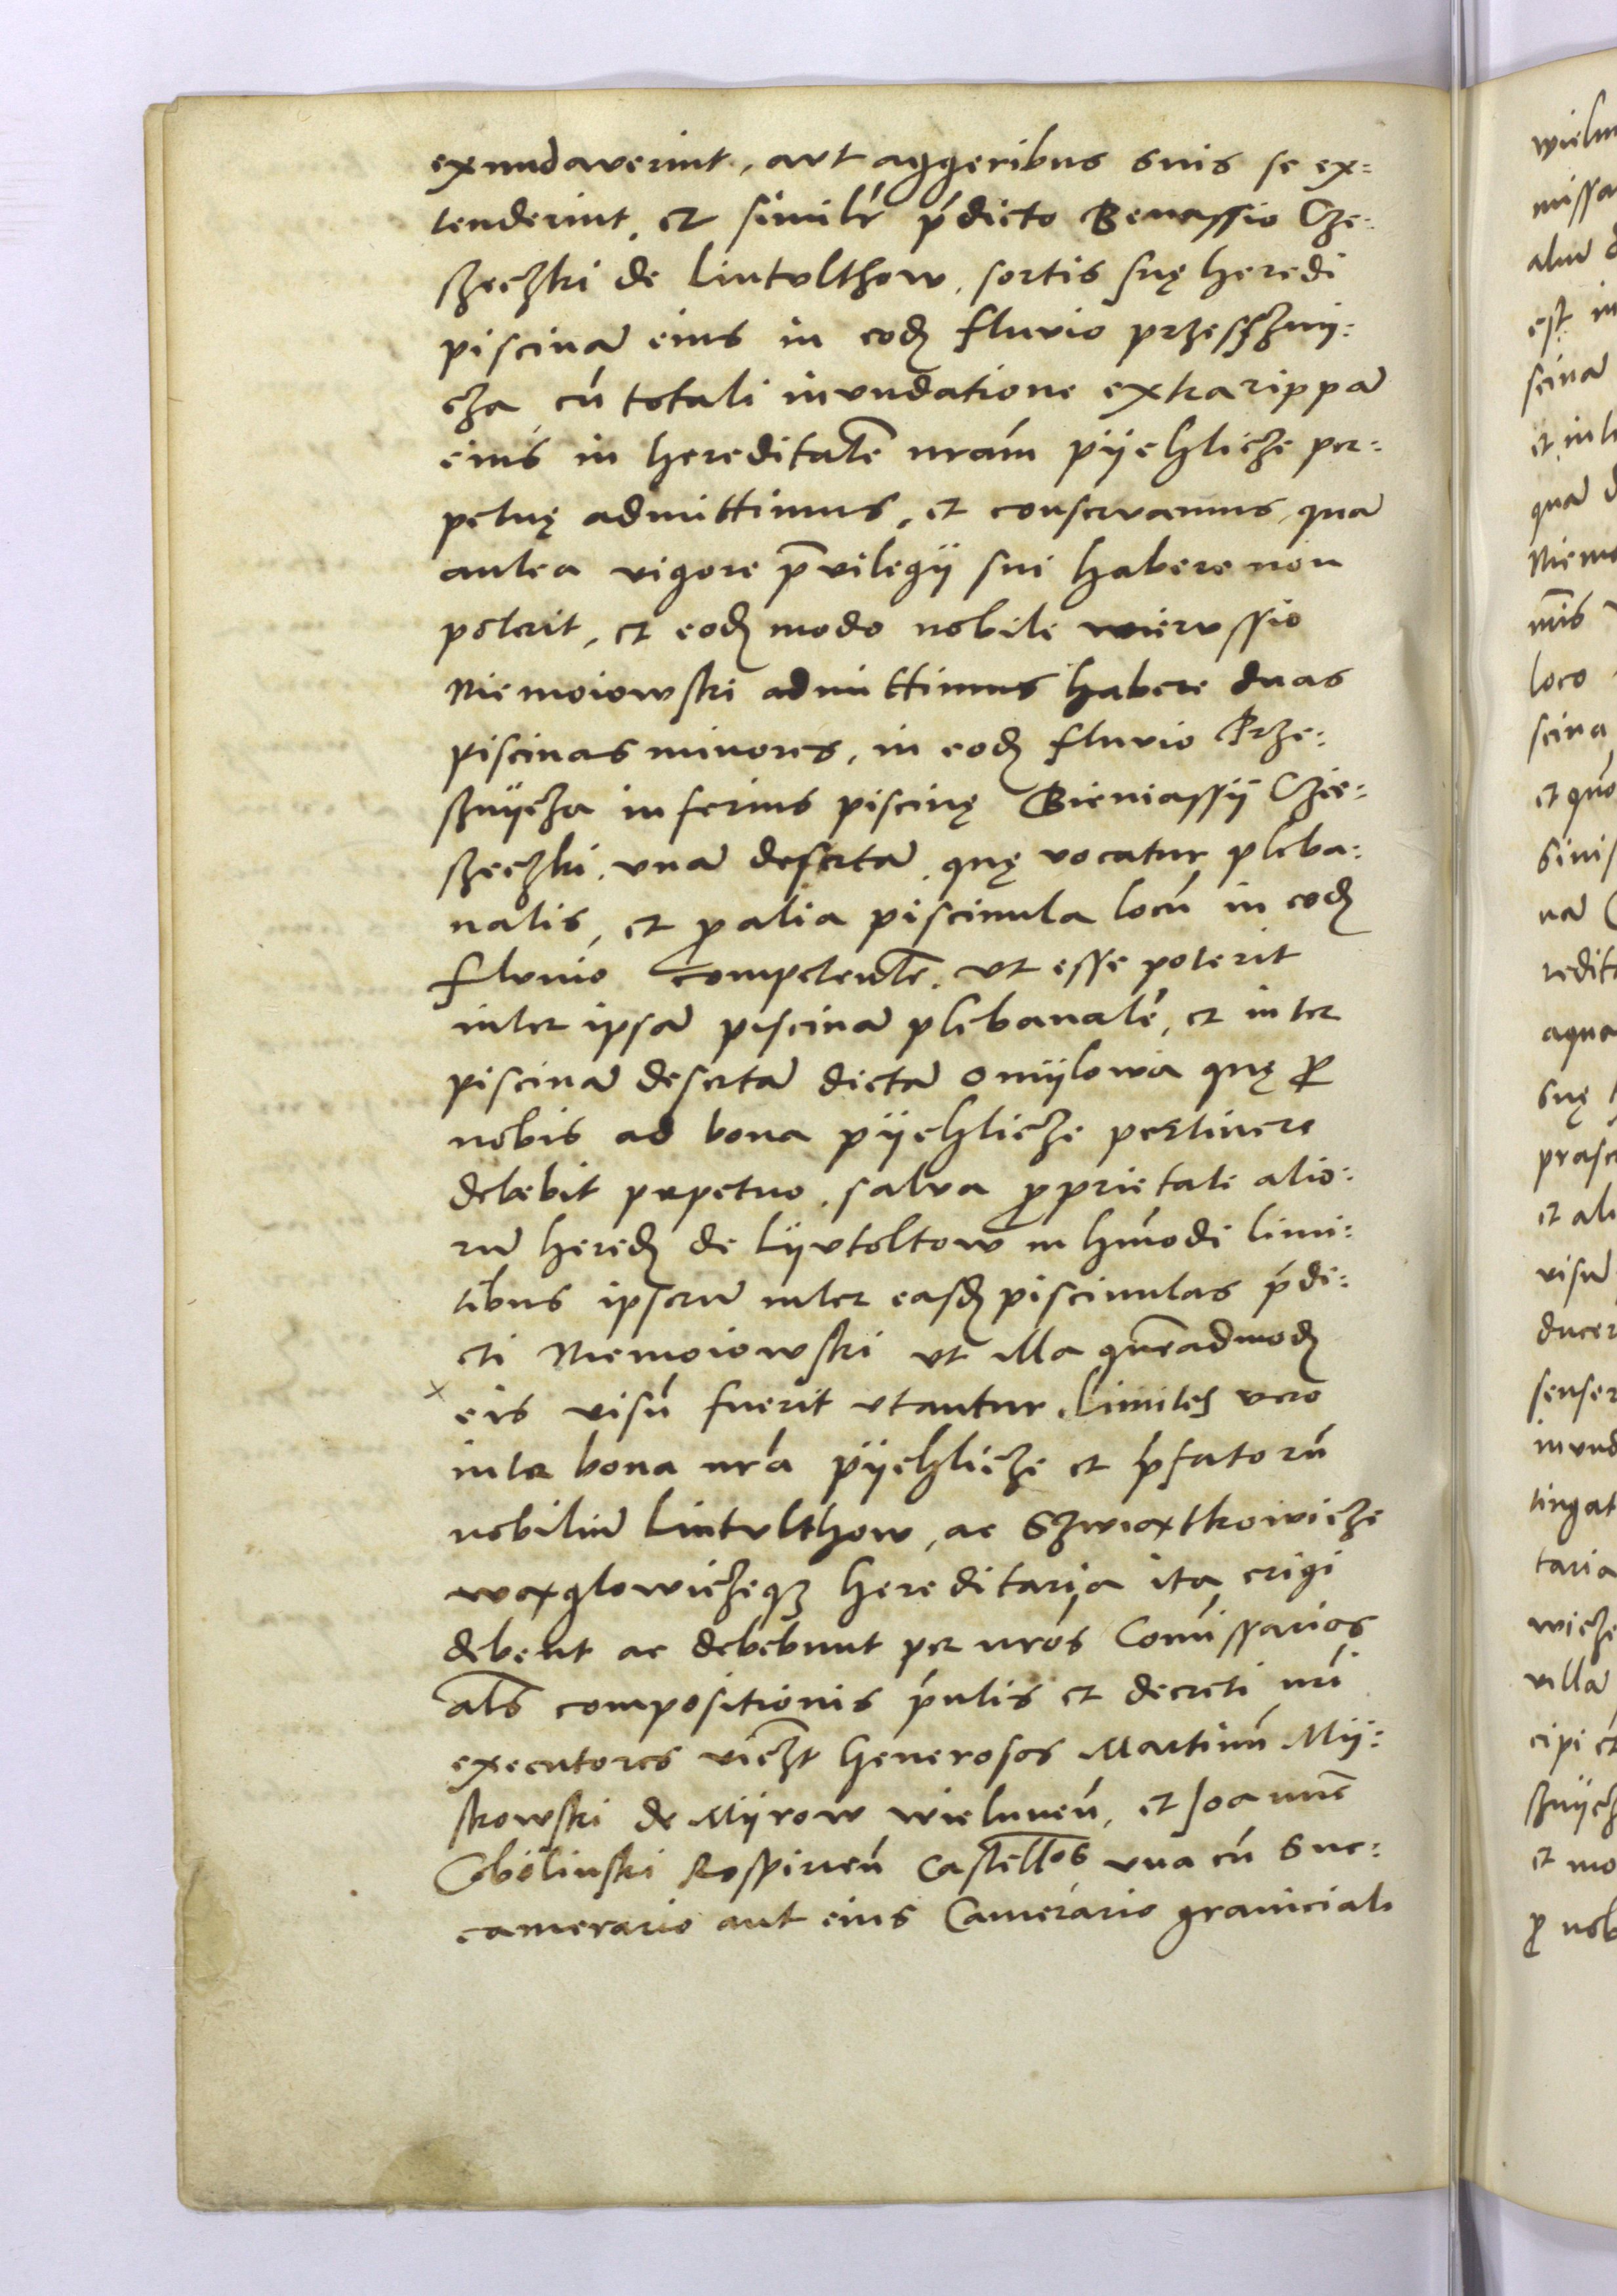 exundaverint, aut aggeribus suis se ex:
tenderint, et similr̃ p̃dicto Benassio Cze:
szeczki de Lintulthow, sortis suę heredi
piscinā eius in eodẽ fluvio przessznÿ:
cza cū totali inundatione extra rippā
eius in hereditatē nr̃am pÿehlicze per:
petuę admittimus, et conservamus, quā
antea vigore p̃vilegÿ sui habere non
poterit, et eodẽ modo nobile wierussio
Niemoiowski admittimus habere duas
piscinas minores, in eodẽ fluvio Prze:
sznÿcza inferius piscinę Bieniassÿ Czie:
szeczki, unā desertā, quę vocatur pleba:
nalis, et ꝓ alia piscinula locū in eodẽ
fluvio competentē, ut esse poterit
inter ipsā piscinā plebanalē, et inter
piscinā desertā dictā omÿlowa quę ꝓ
nobis ad bona pÿehlicze pertinere
debebit perpetuo, salva ꝓprietate alio:
rū heredẽ de Lÿutoltow in hm̃odi limi:
tibus ipsorū inter easdẽ piscinulas p̃di:
cti Niemoiowski ut illa quēadmodũ
eis visū fuerit utantur. Limites vero
inter bona nr̃a pÿehlicze et p̃fatorū
nobiliū Lintulthow, ac Szwiaxtkowicze
waxglowiczeqꝫ hereditaria ita erigi
debent ac debebunt per nr̃os Com̃issarios
als compositionis p̃ntis et decreti nr̃i
executores viczt Generosos Martinū Mÿ:
skowski de Mÿrow wielunen̄, et Joannē
Coboliński Rospirien̄ Castellos unā cū Suc:
camerario aut eius Camerario graniciali